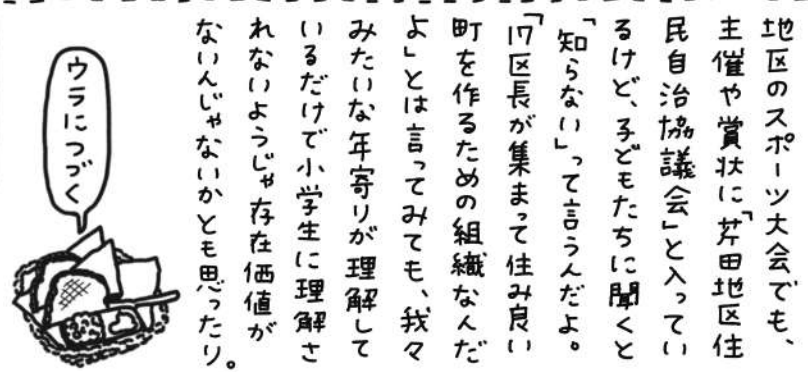 地区のスポーツ大会でも、
主催や賞状に「芹田地区住
民自治協議会」と入ってい
るけど、子どもたちに聞くと
「知らない」って言うんだよ。
「17区長が集まって住み良い
町を作るための組織なんだ
よ」とは言ってみても、我々
みたいな年寄りが理解して
いるだけで小学生に理解さ
れないようじゃ存在価値が
ないんじゃないかとも思ったり。
ウラにつづく